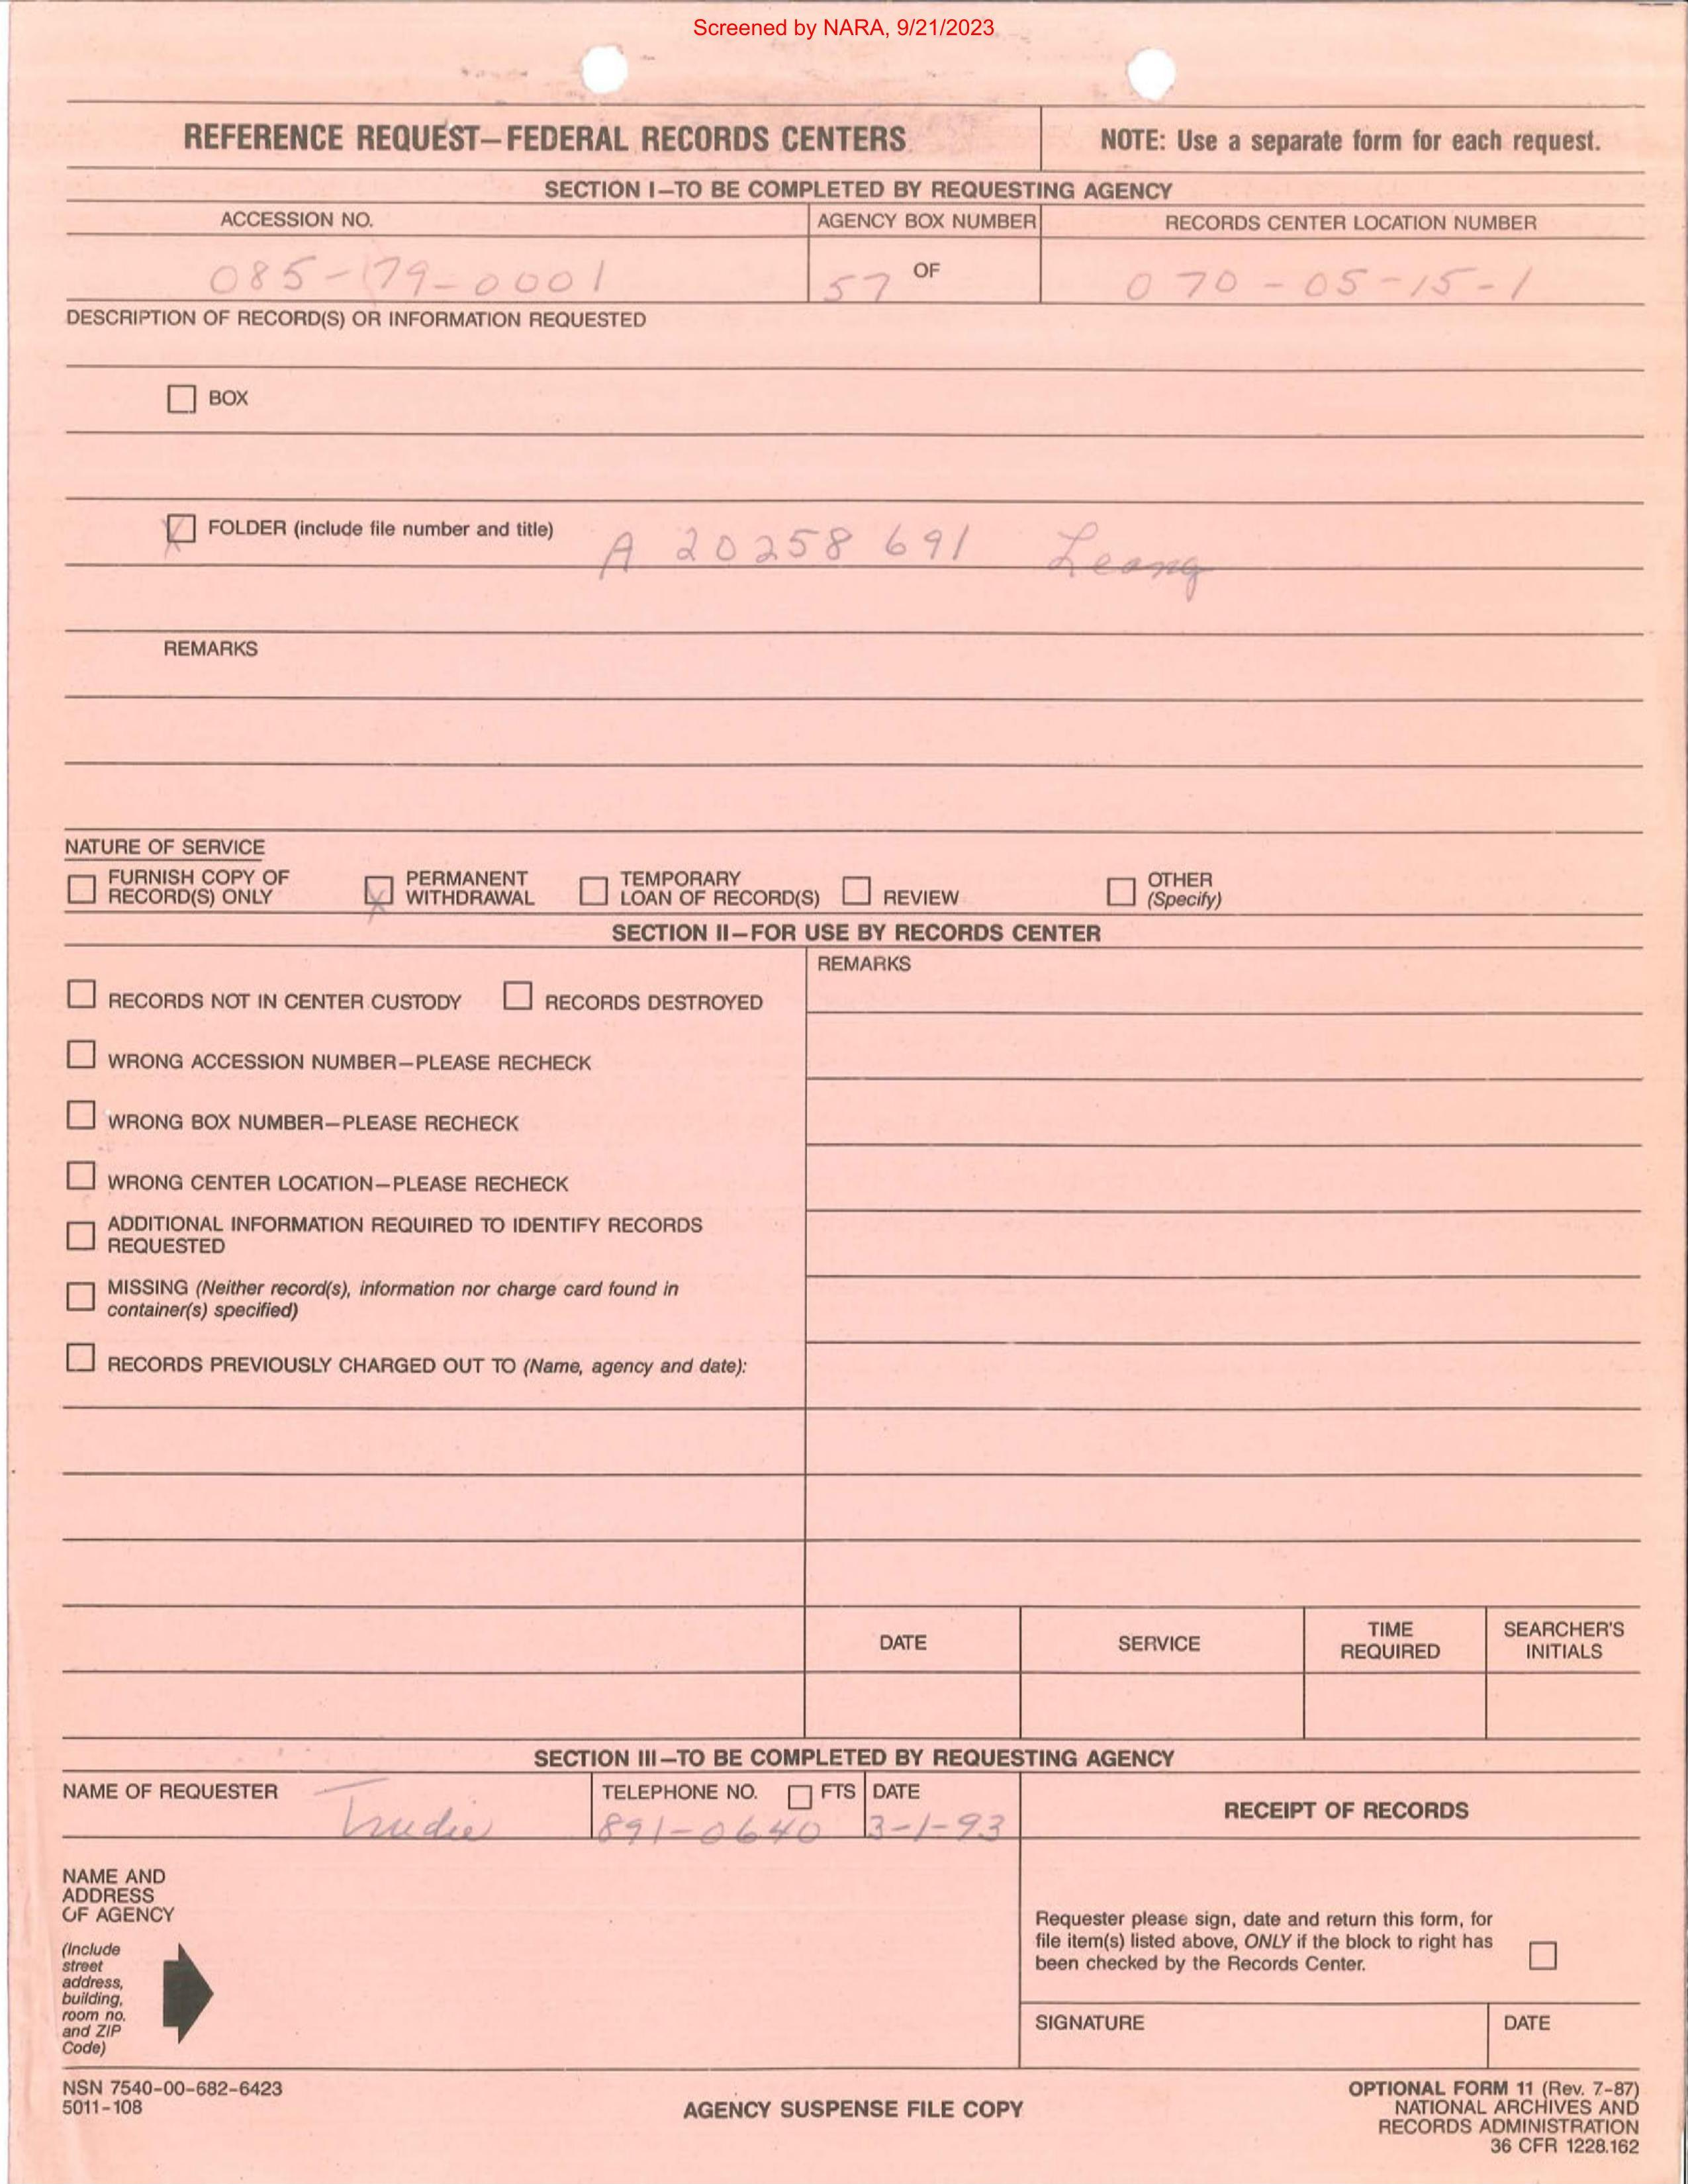 Screened by NARA, 9/21/2023
REFERENCE REQUEST—FEDERAL RECORDS CENTERS
NOTE: Use a separate form for each request.
SECTION I—TO BE COMPLETED BY REQUESTING AGENCY
ACCESSION NO.
AGENCY BOX NUMBER
RECORDS CENTER LOCATION NUMBER
085-79-0001
57 OF
070-05-15-1
DESCRIPTION OF RECORD(S) OR INFORMATION REQUESTED
BOX
X FOLDER (include file number and title) A 20258 691 Leong
REMARKS
NATURE OF SERVICE
FURNISH COPY OF
RECORD(S) ONLY
X PERMANENT
WITHDRAWAL
TEMPORARY
LOAN OF RECORD(S)
REVIEW
OTHER
(Specify)
SECTION II—FOR USE BY RECORDS CENTER
REMARKS
RECORDS NOT IN CENTER CUSTODY
RECORDS DESTROYED
WRONG ACCESSION NUMBER—PLEASE RECHECK
WRONG BOX NUMBER—PLEASE RECHECK
WRONG CENTER LOCATION—PLEASE RECHECK
ADDITIONAL INFORMATION REQUIRED TO IDENTIFY RECORDS
REQUESTED
MISSING (Neither record(s), information nor charge card found in
container(s) specified)
RECORDS PREVIOUSLY CHARGED OUT TO (Name, agency and date):
DATE
SERVICE
TIME
REQUIRED
SEARCHER'S
INITIALS
SECTION III—TO BE COMPLETED BY REQUESTING AGENCY
NAME OF REQUESTER
Trudie
TELEPHONE NO. FTS
891-0640
DATE
3-1-93
RECEIPT OF RECORDS
NAME AND
ADDRESS
OF AGENCY
(Include
street
address,
building,
room no.
and ZIP
Code)
Requester please sign, date and return this form, for
file item(s) listed above, ONLY if the block to right has
been checked by the Records Center.
SIGNATURE
DATE
NSN 7540-00-682-6423
5011-108
AGENCY SUSPENSE FILE COPY
OPTIONAL FORM 11 (Rev. 7-87)
NATIONAL ARCHIVES AND
RECORDS ADMINISTRATION
36 CFR 1228.162